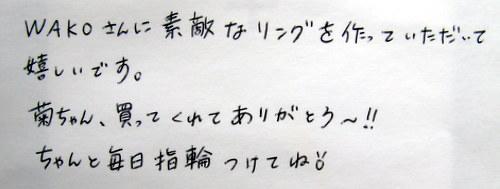 WAKOさんに素敵なリングを作っていただいて
嬉しいです。
菊ちゃん、買ってくれてありがとう〜!!
ちゃんと毎日指輪つけてね